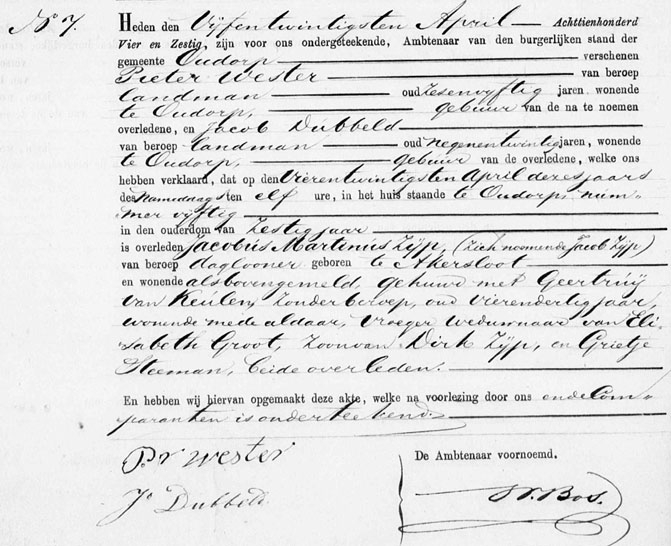 No 7.
Heden den Vijfentwintigsten April Achttienhonderd
Vier en Zestig, zijn voor ons ondergeteekende, Ambtenaar van den burgerlijken stand der
gemeente Oudorp verschenen
Pieter Wester van beroep
landman oud zesenvyftig jaren, wonende
te Oudorp, gebuur van de na te noemen
overledene, en Jacob Dubbeld
van beroep landman oud negenentwintig jaren, wonende
te Oudorp, gebuur van de overledene, welke ons
hebben verklaard, dat op den Vierentwintigsten April dezes jaars
des Namiddags ten elf ure, in het huis staande te Oudorp, num-
mer vyftig
in den ouderdom van Zestig jaar
is overleden Jacobus Martinus Zijp, (zich noemende Jacob Zijp)
van beroep daglooner geboren te Akersloot
en wonende alsbovengemeld, gehuwd met Geertruij
van Keulen, zonder beroep, oud vierendertig jaar,
wonende mede aldaar, vroeger weduwnaar van Eli-
sabeth Groot, zoon van Dirk Zijp, en Grietje
Steeman, beide overleden.
En hebben wij hiervan opgemaakt deze akte, welke na voorlezing door ons en de Com-
paranten is onderteekend.
Pr Wester
De Ambtenaar voornoemd.
Jb Dubbeld
Bos.